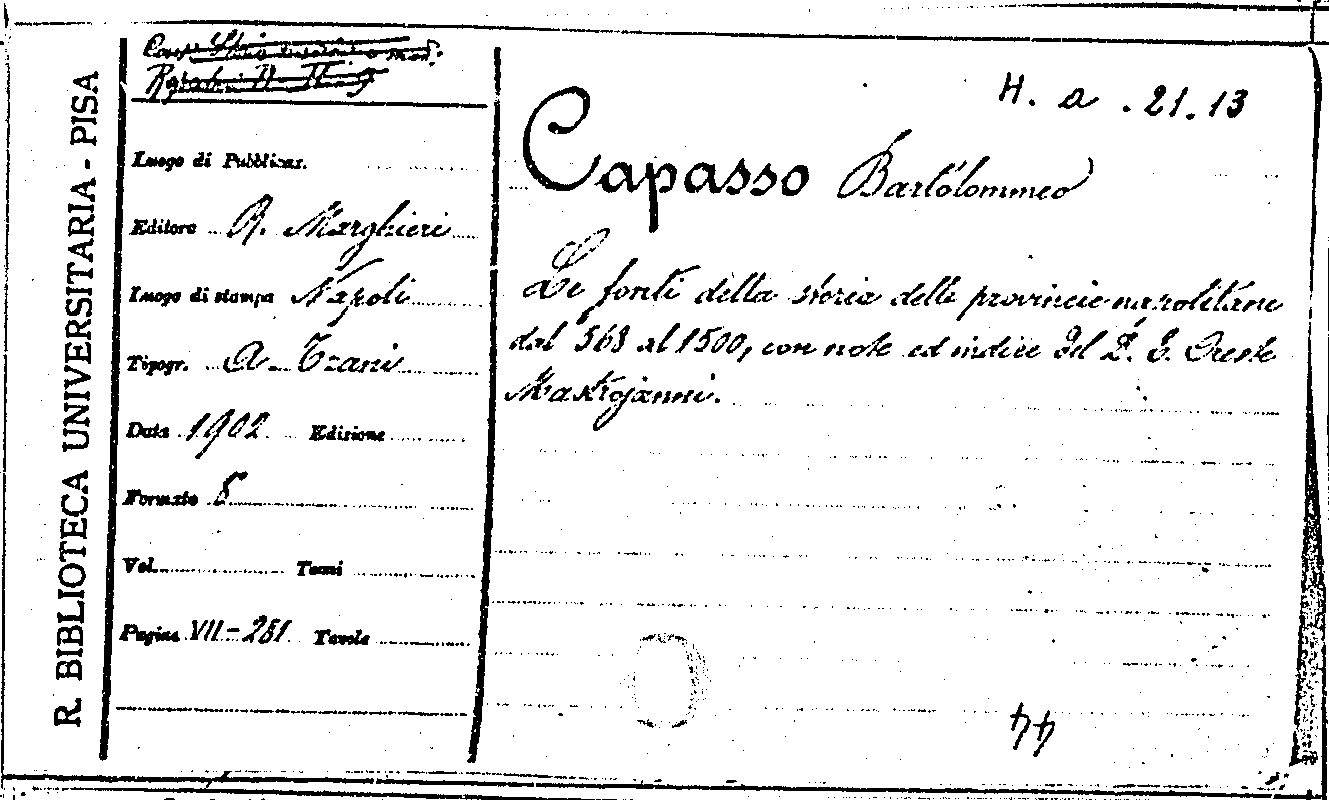 R. BIBLIOTECA UNIVERSITARIA - PISA
Luogo di Pubblicaz.
Editore R. Marghieri
Luogo di stampa Napoli
Tipogr. A. Trani
Data 1902 Edizione
Formato 8
Vol. Tomi
Pagine VII-281 Tavole
H. a. 21. 13
Capasso Bartolommeo
Le fonti della storia delle provincie napolitane
dal 568 al 1500, con note ed indice del D. E. Oreste
Mastrojanni.
44